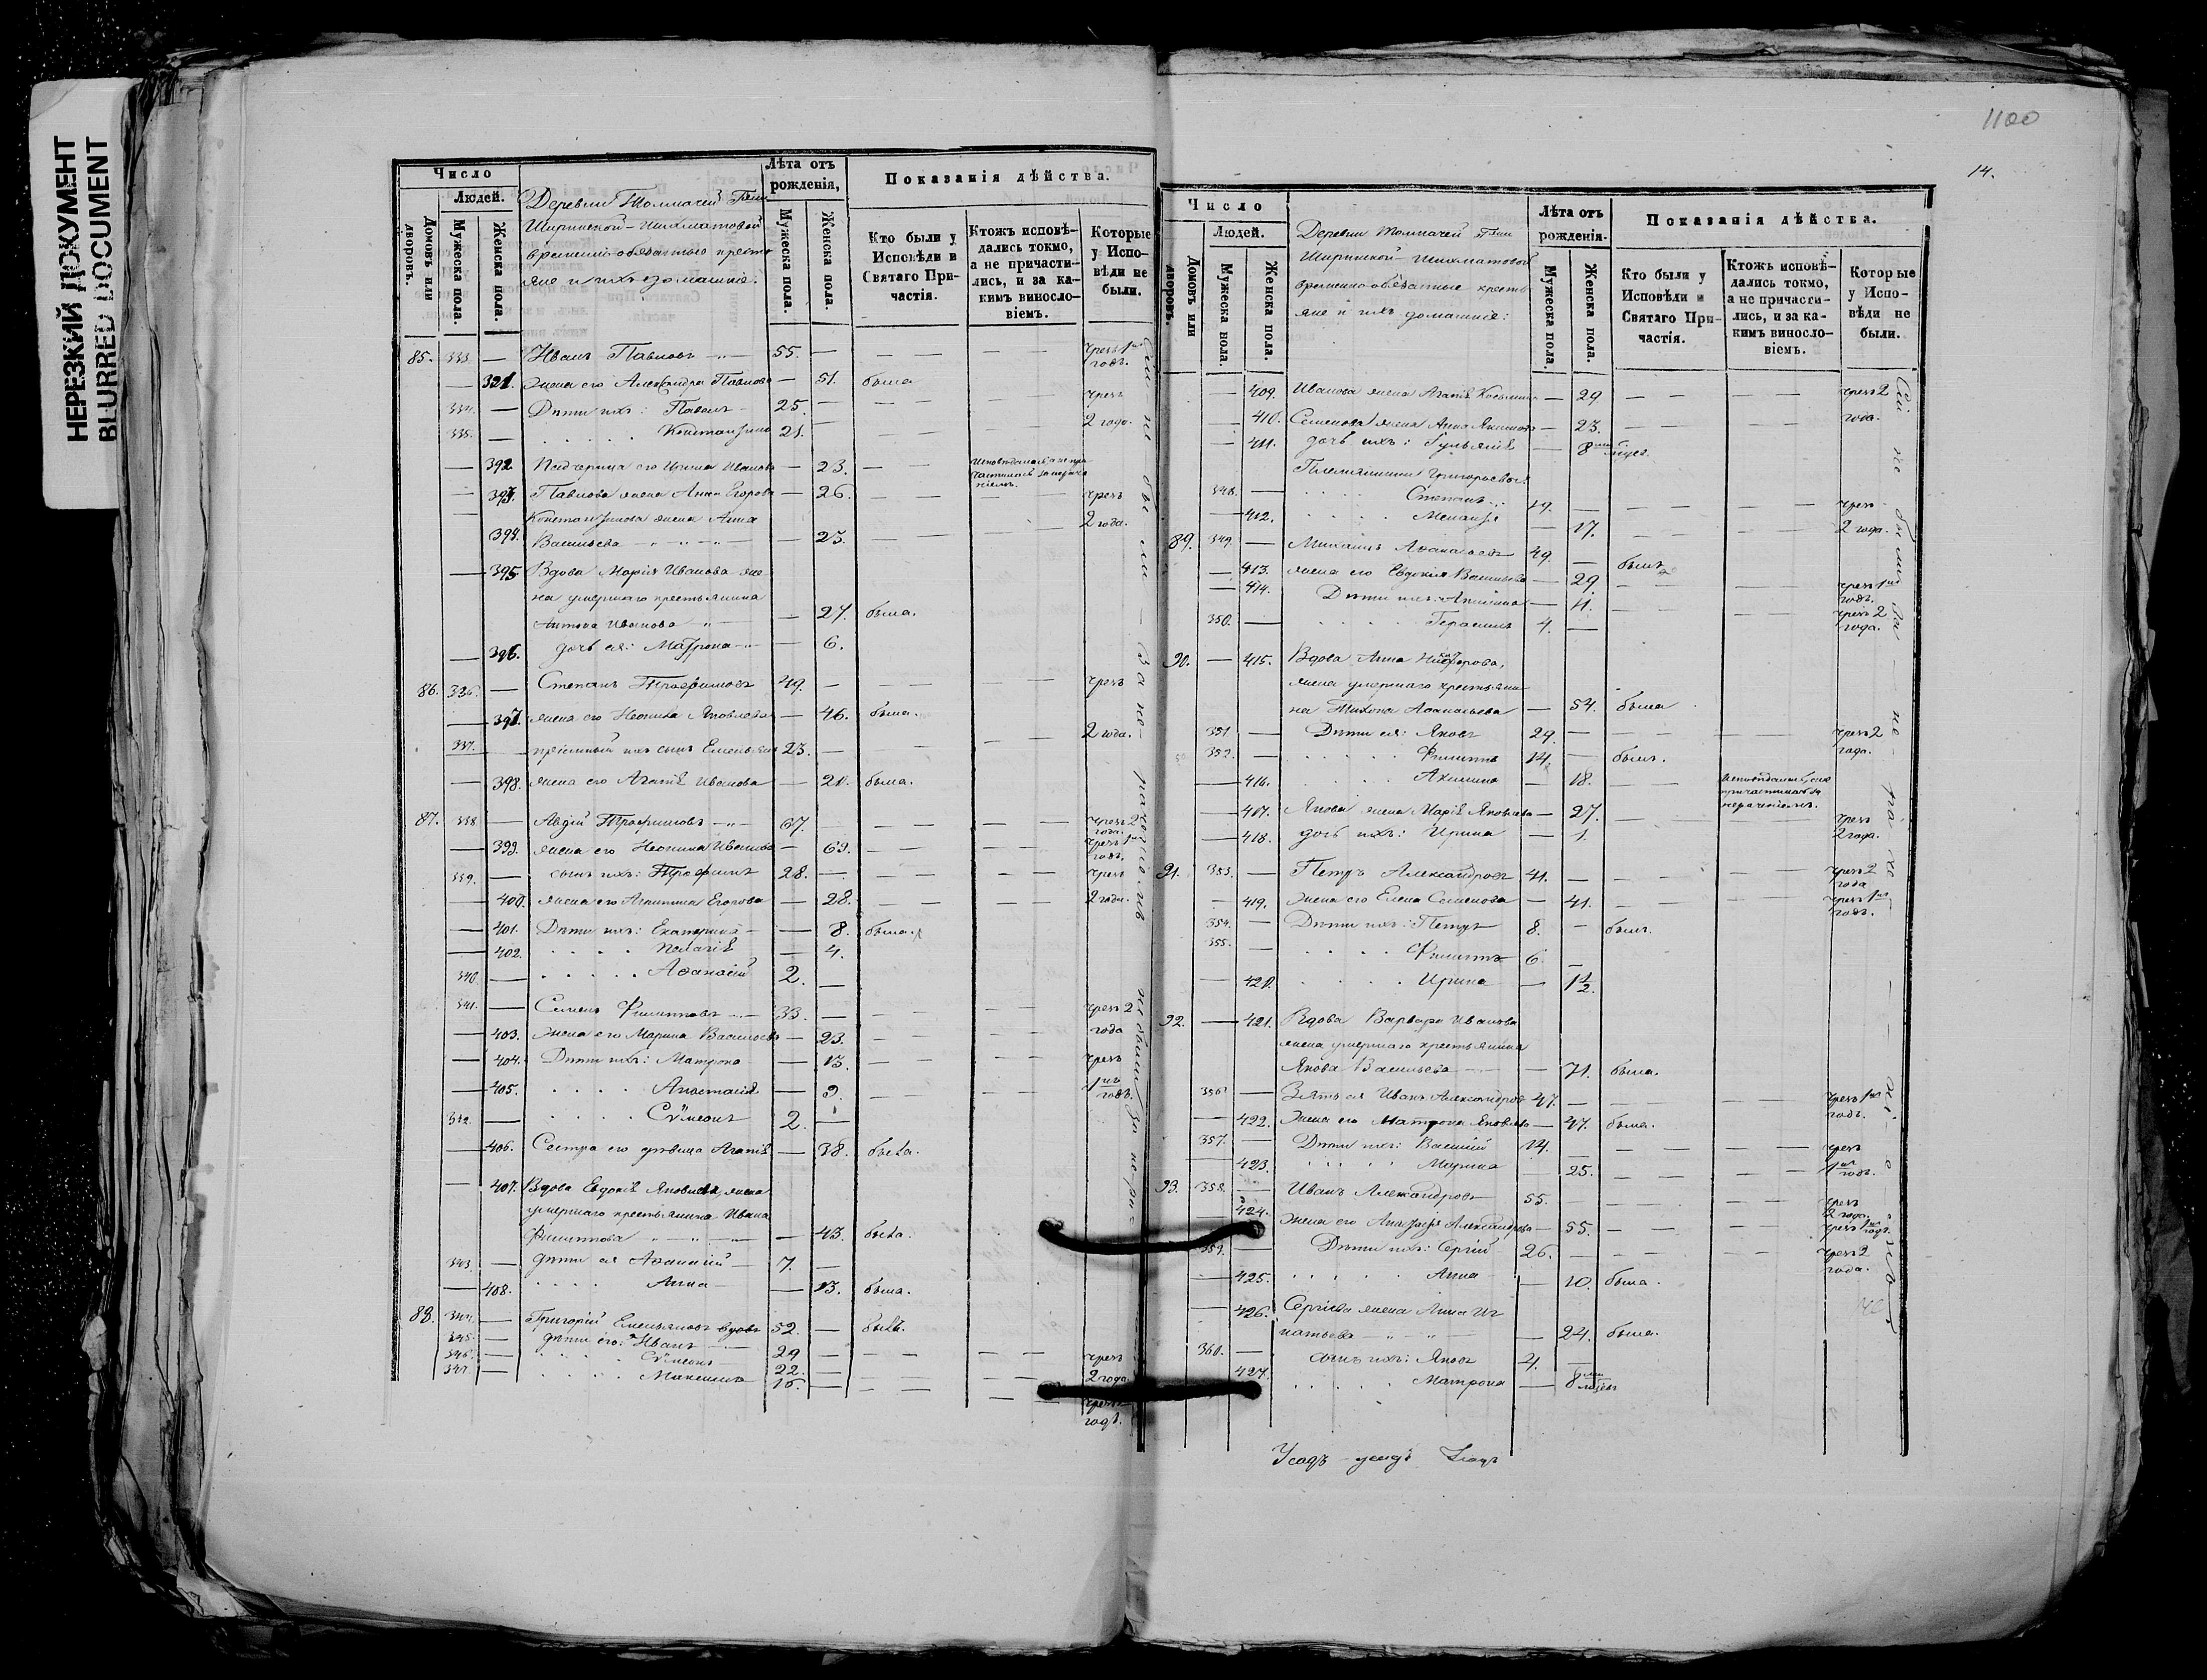 НЕРЕЗКИЙ ДОКУМЕНТ
BLURRED DOCUMENT
Число
Людей.
Домовъ или дворовъ.
Мужеска пола.
Женска пола.
Деревни Толмачей
Ширинской-Шихматовой
временно-обязанные крестья
яне и ихъ домашніе:
Лѣта отъ рожденія,
Мужеска пола.
Женска пола.
Показанія дѣйства.
Кто были у Исповѣди и Святаго Причастія.
Ктожъ исповѣдались токмо, а не причастились, и за какимъ винословіемъ.
Которые у Исповѣди не были.
85. 333. — Иванъ Павловъ 55. — чрезъ 1 годъ.
— 391. жена его Александра Павлова — 51. была
334. — Дѣти ихъ: Павелъ 25. — чрезъ
335. — Константинъ 21. — 2 года.
— 392. Падчерица его Ирина Иванова — 23.
— 393. Павлова жена Анна Егорова — 26. чрезъ
Константинова жена Анна 2 года.
394. Васильева — 23.
— 395 Вдова Марія Иванова же
на умершаго крестьянина
Антона Иванова — 27. была.
— 396. дочь ея: Матрона — 6.
86. 336. — Степанъ Трофимовъ 49. — чрезъ
— 397. жена его Неонила Яковлева — 46. была.
337. пріемный ихъ сынъ Емельянъ 23. — 2 года.
— 398. жена его Агапія Иванова — 20. была.
87. 338 — Авдій Трофимовъ 67. — чрезъ 2 года.
— 399. жена его Неонила Иванова — 63. чрезъ 1 годъ.
339. — сынъ ихъ: Трофимъ 28. — чрезъ
— 400. жена его Агриппина Егорова — 28. 2 года.
— 401. Дѣти ихъ: Екатерина — 8. была.
— 402. Пелагія — 4.
340 — Аѳанасій 2. —
341. — Семенъ Филипповъ 33. — чрезъ 2
— 403. жена его Марина Васильева — 23. года
— 404. Дѣти ихъ: Матрона — 13. чрезъ
— 405. Анастасія — 9. 1 годъ.
342. — Сѵмеонъ 2. —
— 406. Сестра его дѣвица Агапія — 38. была.
— 407. Вдова Евдокія Яковлева, жена
умершаго крестьянина Ивана
Филиппова — 43. была.
343. — дѣти ея Аѳанасій 7. —
— 408. Анна — 13. была.
88. 344. — Григорій Емельяновъ вдовъ 52. — былъ.
345. — дѣти его: Иванъ 29 —
346. — Сѵмеонъ 22. — чрезъ
347 — Максимъ 15. — 2 года
чрезъ
годъ.
Сіи не были за нераченіемъ
1100
14.
Число
Людей.
Домовъ или дворовъ.
Мужеска пола.
Женска пола.
Деревни Толмачей
Ширинской-Шихматовой
временно-обязанные кресть
яне и ихъ домашніе:
Лѣта отъ рожденія.
Мужеска пола
Женска пола.
Показанія дѣйства.
Кто были у Исповѣди и Святаго Причастія.
Ктожъ исповѣдались токмо, а не причастились, и за какимъ винословіемъ.
Которые у Исповѣди не были.
— 409. Иванова жена Агапія Косьмина — 29. чрезъ 2
— 410. Семенова жена Анна Якимова — 23. года.
— 411. дочь ихъ: Гульянія — 8
Племянники Григорьевы:
348. — Степанъ 19. — чрезъ
— 412. — 17. 2 года.
89. 349. — Михаилъ Аѳанасьевъ 49. — былъ
— 413. жена его Евдокія Васильева — 29. чрезъ 1 годъ.
— 414. Дѣти ихъ: — 11. чрезъ 2
350. — Герасимъ 4. — года.
90. — 415. Вдова Анна Никифорова,
жена умершаго крестьяни
на Тихона Аѳанасьева — 54. была
351 — Дѣти ея: Яковъ 29. — чрезъ 2
352. — Филиппъ 14. — былъ. года.
— 416. Акилина — 18.
— 417. Якова жена Марія Яковлева — 27. чрезъ
— 418. дочь ихъ: Ирина — 1. 2 года.
91. 353. — Петръ Александровъ 41. — чрезъ 2 года
— 419. жена его Елена Семенова — 41. чрезъ 1 годъ.
354. — Дѣти ихъ: Петръ 8. — былъ.
355. — Филиппъ 6. —
— 420. Ирина — 1½.
92. — 421. Вдова Варвара Иванова
жена умершаго крестьянина
Якова Васильева — 71. была.
356 — Зять ея Иванъ Александровъ 47. — чрезъ 1 годъ.
— 422. жена его Матрона Яковлева — 47. была.
357. — Дѣти ихъ: Василій 14. — чрезъ
— 423. Марина — 25. 1 годъ.
93. 358. — Иванъ Александровъ 55. — чрезъ 2 года.
424. жена его Александрова — 55. чрезъ 1 годъ.
359. — Дѣти ихъ: Сергій 26. — чрезъ 2
— 425. Анна — 10. была. года.
— 426. Сергіева жена Анна Иг
натьева — 24. была.
360. — сынъ ихъ: Яковъ 4. —
427. Матрона — 8
Сіи не были за нераченіемъ